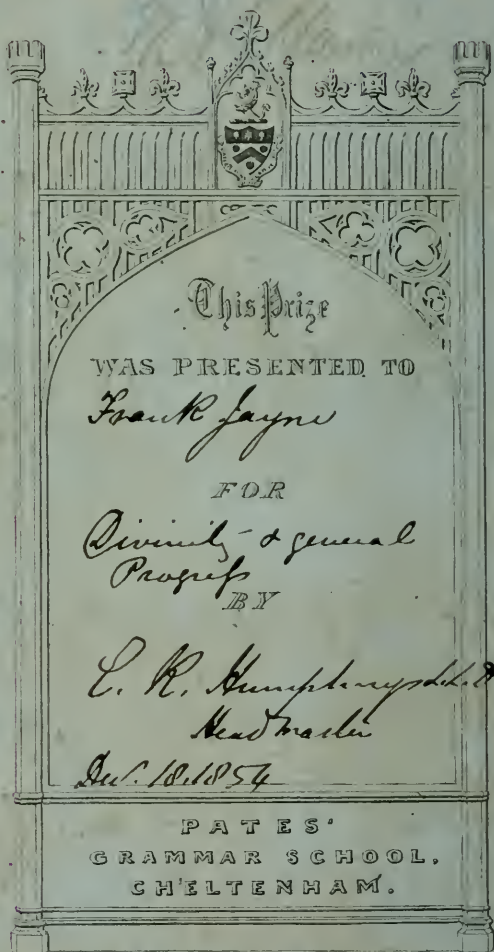 This Prize
WAS PRESENTED TO
Frank Jayne
FOR
Divinity & general
Progress
BY
E. R. Humphreys LL.D
Head Master
Dec. 18. 1854
PATES'
GRAMMAR SCHOOL,
CHELTENHAM.